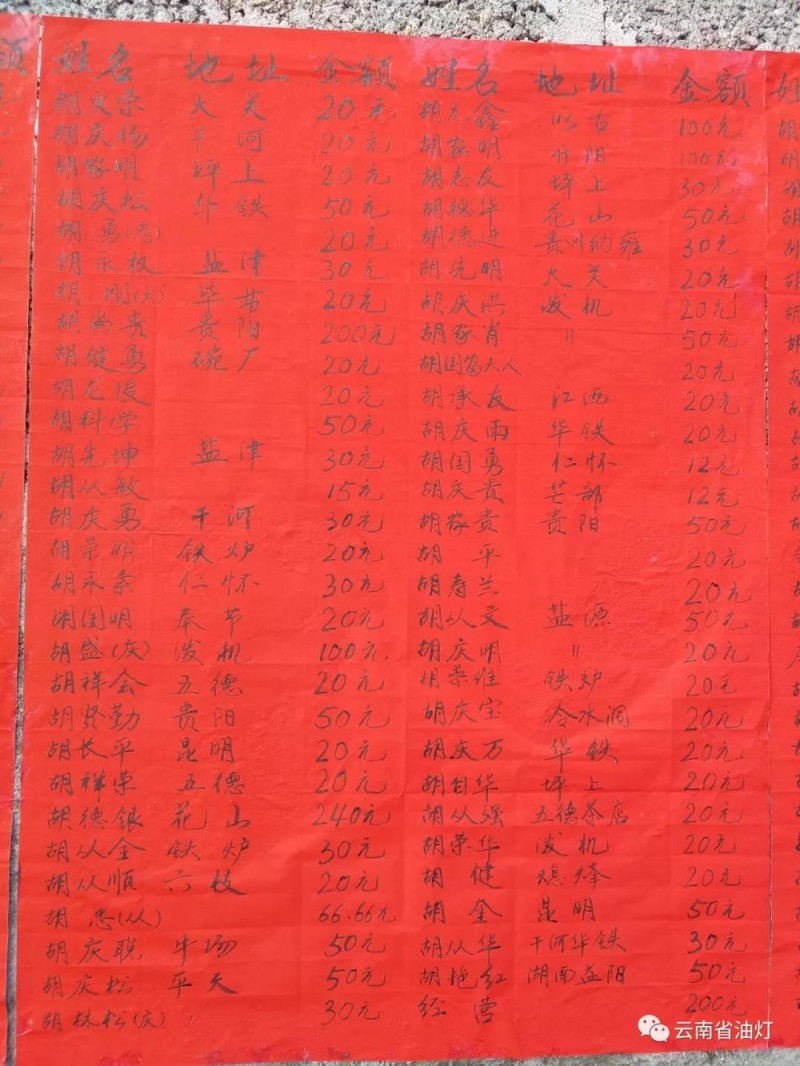 额
姓名 地址 金额
胡文荣 大关 20元
胡庆杨 干河 20元
胡家明 坪上 20元
胡庆松 华铁 50元
胡勇(忠) 20元
胡永权 盐津 30元
胡刚(大) 毕节 20元
胡尚贵 贵阳 200元
胡健勇 碗厂 20元
胡龙俊 20元
胡科学 50元
胡先坤 盐津 30元
胡从敏 15元
胡庆勇 干河 30元
胡荣明 铁炉 20元
胡永素 仁怀 30元
胡国明 奉节 20元
胡盛(庆) 泼机 100元
胡祥会 五德 20元
胡贤勤 贵阳 50元
胡长平 昆明 20元
胡祥荣 五德 20元
胡德银 花山 240元
胡从全 铁炉 30元
胡从顺 六枝 20元
胡忠(从) 66.66元
胡庆聪 牛场 50元
胡庆松 平天 50元
胡林松(庆) 30元
姓名 地址 金额
胡九鑫 以古 100元
胡家明 阳 100元
胡志友 坪上 30元
胡德华 花山 50元
胡德进 贵州纳雍 30元
胡先明 大关 20元
胡庆洪 泼机 20元
胡家肖 〃 50元
胡国富大人 20元
胡承友 江西 20元
胡庆雨 华铁 20元
胡国勇 仁怀 12元
胡庆贵 芒部 12元
胡家贵 贵阳 50元
胡平 20元
胡寿兰 20元
胡从文 盐源 50元
胡庆明 〃 20元
胡荣维 铁炉 20元
胡庆宝 冷水洞 20元
胡庆万 华铁 20元
胡自华 坪上 20元
胡从强 五德茶店 20元
胡荣华 泼机 20元
胡健 熄烽 20元
胡金 昆明 50元
胡从华 干河华铁 30元
胡艳红 湖南益阳 50元
经营 200元
姓
云南省油灯